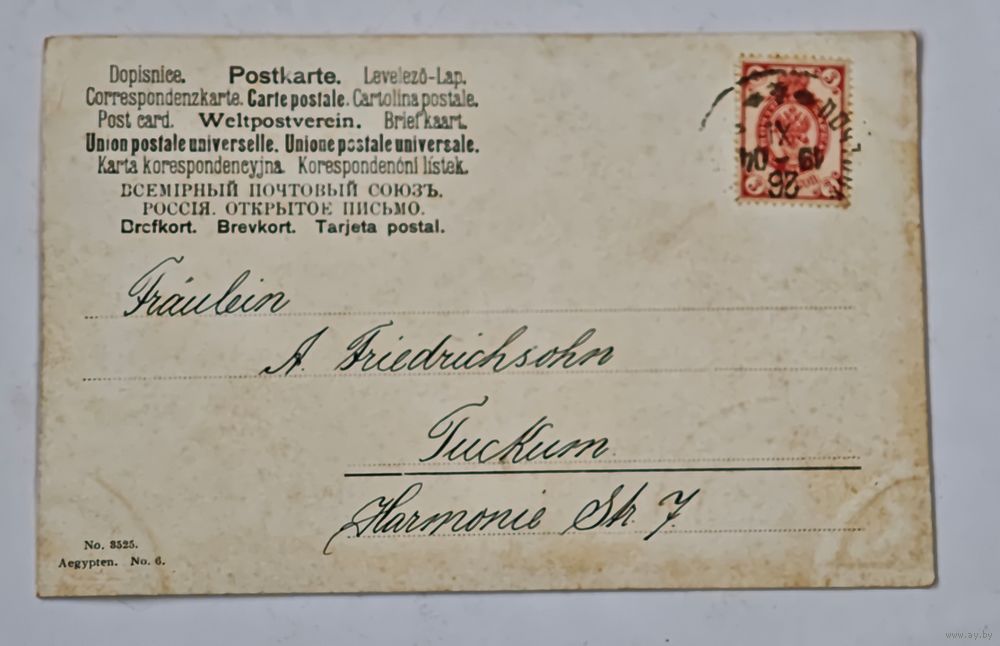 Dopisnice. Postkarte. Levelező-Lap.
Correspondenzkarte. Carte postale. Cartolina postale.
Post card. Weltpostverein. Briefkaart.
Union postale universelle. Unione postale universale.
Karta korespondencyjna. Korespondenční lístek.
ВСЕМІРНЫЙ ПОЧТОВЫЙ СОЮЗЪ.
РОССІЯ. ОТКРЫТОЕ ПИСЬМО.
Brefkort. Brevkort. Tarjeta postal.
19 - 04
26
3 3
Fräulein
A. Friedrichsohn
Tuckum
Harmonie Str. 7.
No. 3525.
Aegypten. No. 6.
www.ay.by